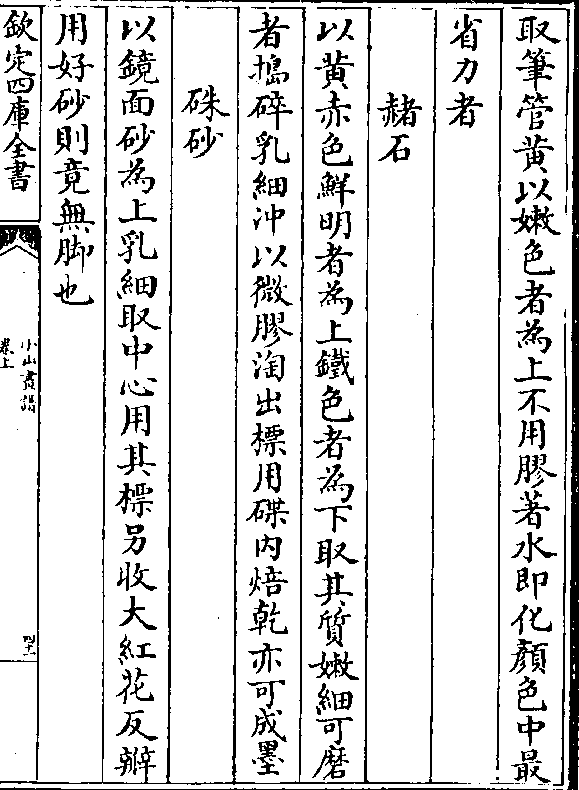 取筆管黄以嫩色者為上不用膠著水即化顔色中最
省力者
赭石
以黄赤色鮮明者為上鐵色者為下取其質嫩細可磨
者搗碎乳細沖以微膠淘出標用磲内焙乾亦可成墨
硃砂
以鏡面砂為上乳細取中心用其標另收大紅花反瓣
用好砂則竟無脚也
欽定四庫全書
小山畫譜
卷上